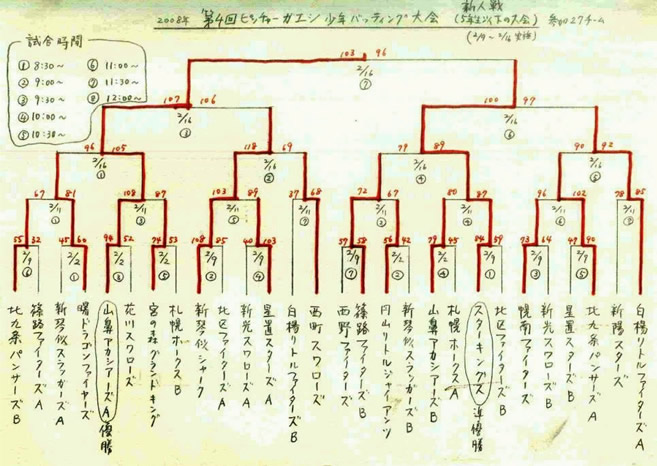 2008年 第4回ピッチャーガエシ少年バッティング大会 新人戦
(5年生以下の大会) 参加27チーム
試合時間
① 8:30~ ⑥ 11:00~
② 9:00~ ⑦ 11:30~
③ 9:30~ ⑧ 12:00~
④ 10:00~
⑤ 10:30~
103 96
2/16
⑦
107 106 100 97
2/16 2/16
96 105 118 69 79 89 90 92
2/16 2/16 2/16 2/16
67 81 108 87 103 89 37 68 72 67 80 87 96 102 78 85
55 32 45 60 94 52 74 53 108 85 40 103 57 58 56 42 79 45 84 59 73 64 49 90
北九条パンサーズB
篠路ファイターズA
新琴似スラッガーズA
曙ドラゴンファイヤーズ
山鼻アカシアーズA 優勝
花川スワローズ
宮の森グランドキング
札幌ホークスB
新琴似シャーク
北区ファイターズA
新光スワローズA
星置スターズA
白楊リトルファイターズB
西町スワローズ
西野ファイターズ
篠路ファイターズB
円山リトルジャイアンツ
新琴似スラッガーズB
山鼻アカシアーズB
札幌ホークスA
スターキングス 準優勝
北区ファイターズB
幌南ファイターズ
新光スワローズB
星置スターズB
北九条パンサーズA
新陽スターズ
白楊リトルファイターズA